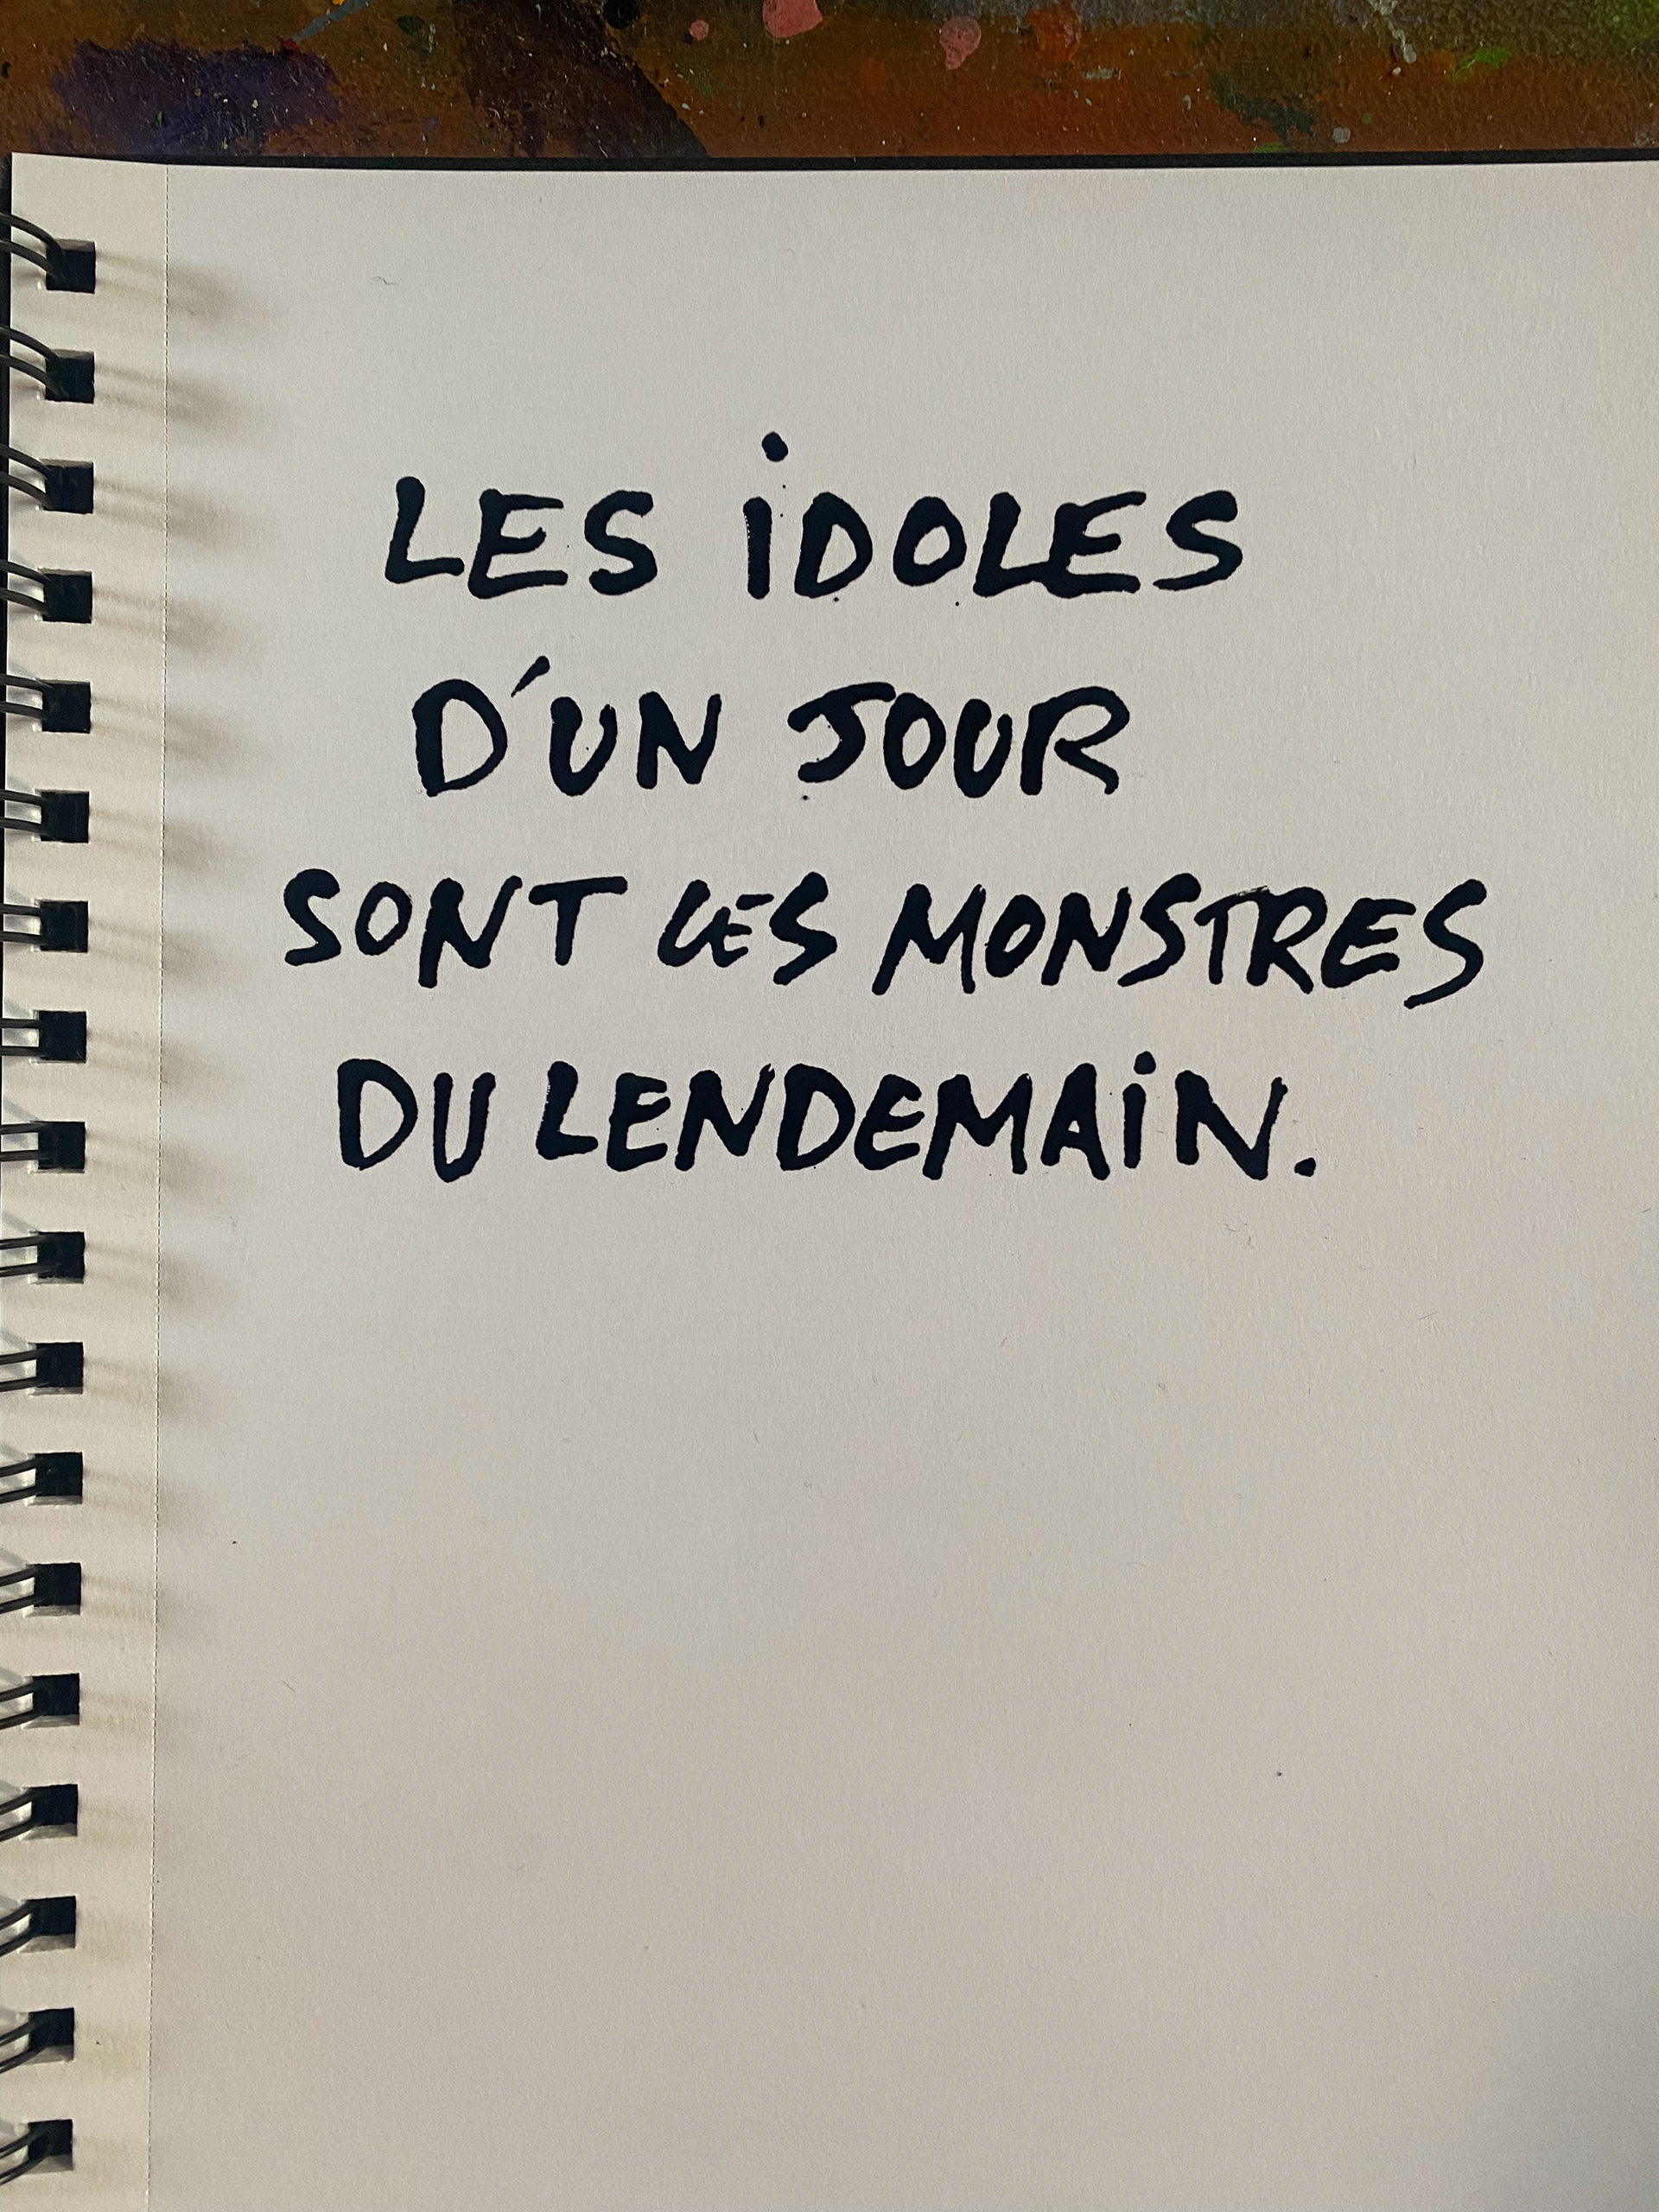 LES iDOLES
D'UN JOUR
SONT LES MONSTRES
DU LENDEMAiN.